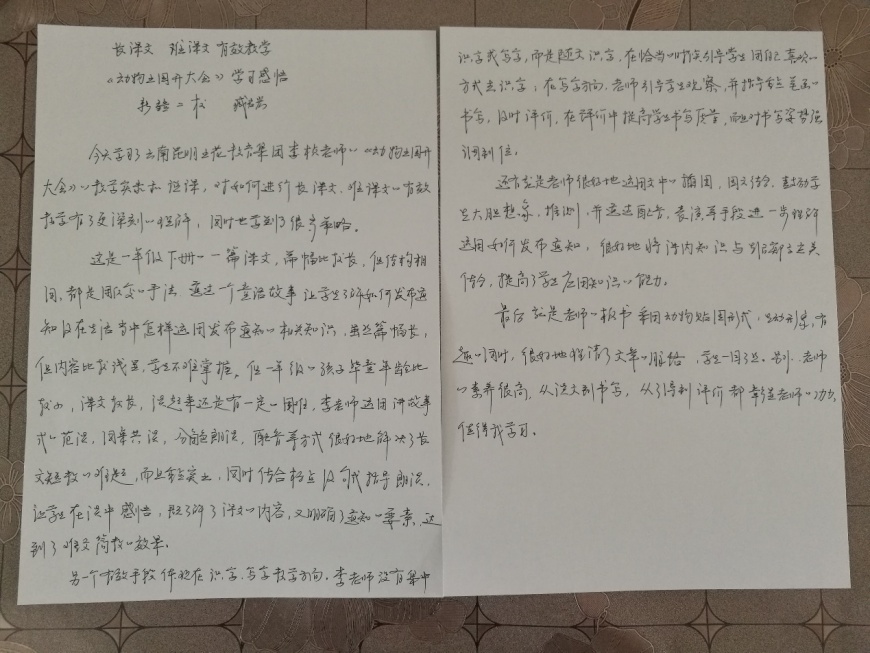 长课文 难课文 有效教学
《动物王国开大会》学习感悟
二校
今天学习了云南昆明立花教育集团李桢老师的《动物王国开
大会》的教学实录和评课，对如何进行长课文、难课文的有效
教学有了更深刻的理解，同时也学到了很多策略。
这是一年级下册的一篇课文，篇幅比较长，但结构相
同，都是反复的手法 通过一个童话故事 让学生了解如何发布通
知以及在生活当中怎样运用发布通知的相关知识，虽然篇幅长，
但内容比较浅显，学生不难掌握。但一年级的孩子毕竟年龄比
较小，课文较长，读起来还是有一定的困难，李老师运用讲故事
式的范读，同桌共读，分角色朗读，配音等方式很好地解决了长
文短教的难题，而且扎实，同时结合标点及句式指导朗读，
让学生在读中感悟，既了解了课文的内容，又明确了通知的要素，达
到了难文简教的效果。
另一个有效手段体现在识字、写字教学方面，李老师没有集中
识字或写字，而是随文识字，在恰当的时候引导学生用自己喜欢的
方式去识字；在写字方面，老师引导学生观察，并指导重点笔画的
书写，及时评价，在评价中提高学生书写质量，而且对书写姿势强
调到位。
还有就是老师很好地运用文中的插图，图文结合，鼓励学
生大胆想象、推测，并通过配音、表演等手段进一步理解
运用如何发布通知，很好地将课内知识与生活
结合，提高了学生应用知识的能力。
最后就是老师的板书采用动物贴图形式，生动形象，有
趣的同时，很好地理清了文章的脉络，学生一目了然。老师
的素养很高，从读文到书写，从引导到评价都彰显老师的功力，
值得我学习。